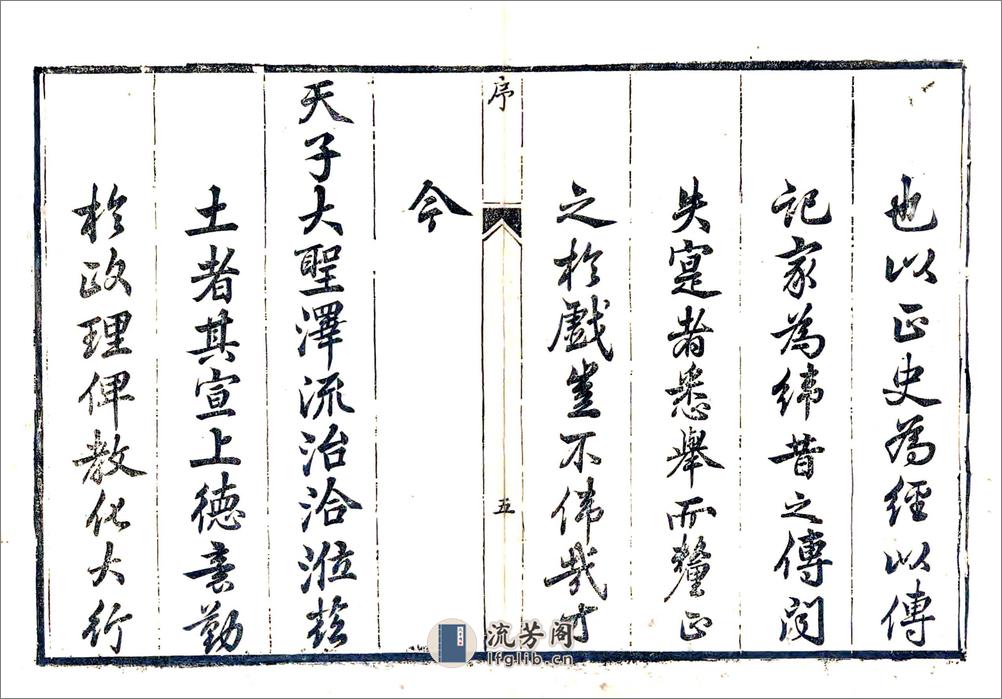 也以正史為經以傳
記家為緯昔之傳聞
失寔者悉舉而釐正
之於戲豈不偉哉方
序
五
今
天子大聖澤流治洽涖茲
土者其宣上德意勤
於政理俾教化大行
流芳阁
lfglib.cn